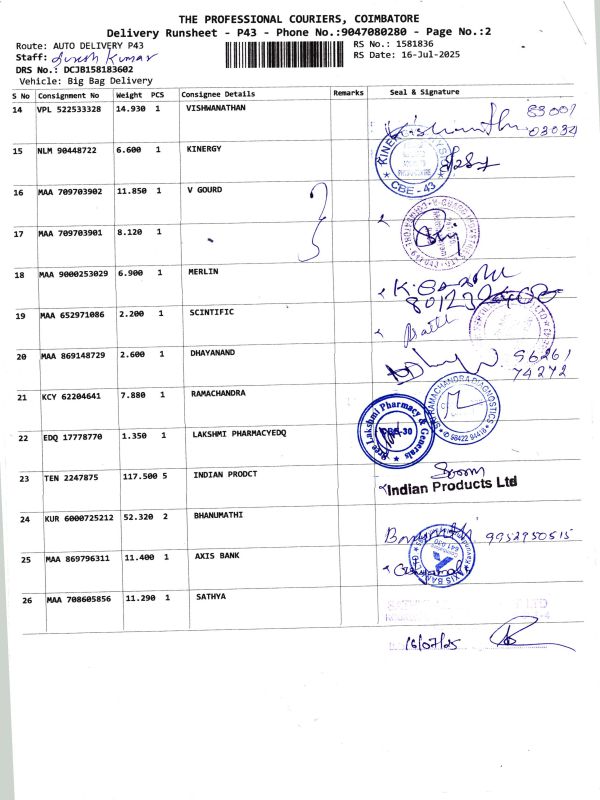 THE PROFESSIONAL COURIERS, COIMBATORE
Delivery Runsheet - P43 - Phone No.:9047080280 - Page No.:2
Route: AUTO DELIVERY P43 RS No.: 1581836
Staff: Suresh Kumar RS Date: 16-Jul-2025
DRS No.: DCJB158183602
Vehicle: Big Bag Delivery
S No Consignment No Weight PCS Consignee Details Remarks Seal & Signature
14 VPL 522533328 14.930 1 VISHWANATHAN
15 NLM 90448722 6.600 1 KINERGY
CBE-43
16 MAA 709703902 11.850 1 V GOURD
17 MAA 709703901 8.120 1
18 MAA 9000253029 6.900 1 MERLIN
19 MAA 652971086 2.200 1 SCINTIFIC
20 MAA 869148729 2.600 1 DHAYANAND 96261
74272
21 KCY 62204641 7.880 1 RAMACHANDRA
RAMACHANDRA DIAGNOSTICS
22 EDQ 17778770 1.350 1 LAKSHMI PHARMACYEDQ
Sree Lakshmi Pharmacy & Generals
CBE-30
23 TEN 2247875 117.500 5 INDIAN PRODCT
Indian Products Ltd
24 KUR 6000725212 52.320 2 BHANUMATHI 9952950515
25 MAA 869796311 11.400 1 AXIS BANK
AXIS BANK
641 030
26 MAA 708605856 11.290 1 SATHYA
16/07/25